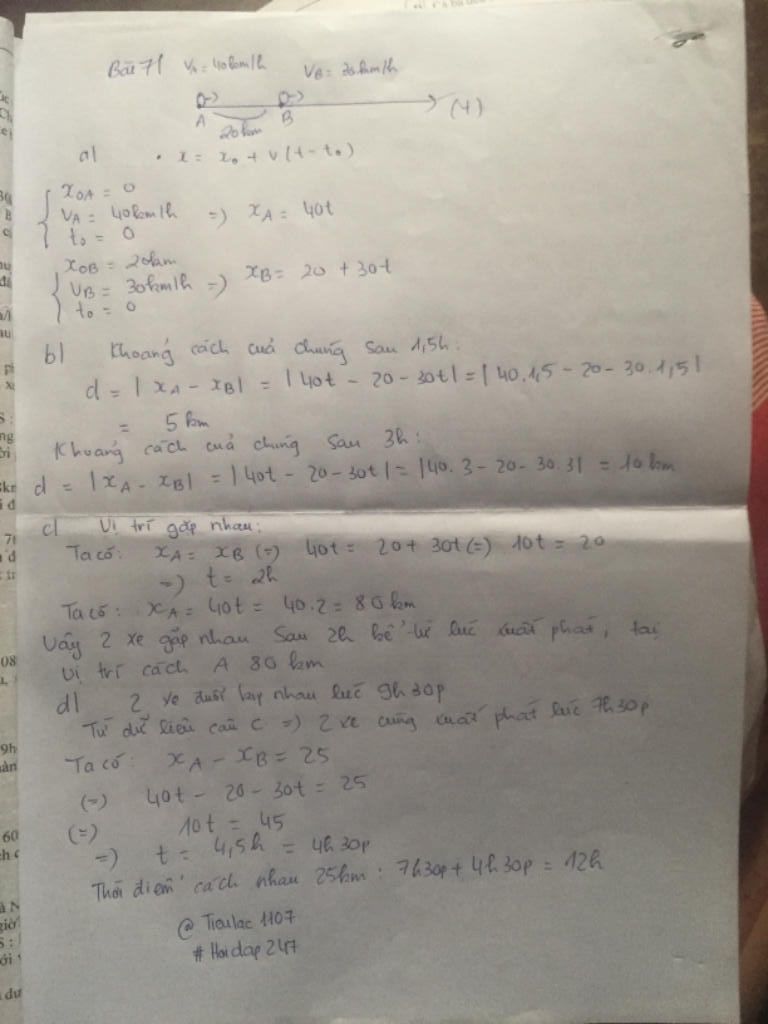 Bài 7/ VA = 40km/h VB = 30km/h
A B (+)
20km
a/ • x = x₀ + v(t - t₀)
x₀A = 0
VA = 40km/h => xA = 40t
t₀ = 0
x₀B = 20km
VB = 30km/h => xB = 20 + 30t
t₀ = 0
b/ Khoảng cách của chúng sau 1,5h:
d = |xA - xB| = |40t - 20 - 30t| = |40.1,5 - 20 - 30.1,5|
= 5km
Khoảng cách của chúng sau 3h:
d = |xA - xB| = |40t - 20 - 30t| = |40.3 - 20 - 30.3| = 10km
c/ Vị trí gặp nhau:
Ta có: xA = xB (=) 40t = 20 + 30t (=) 10t = 20
=) t = 2h
Ta có: xA = 40t = 40.2 = 80km
Vậy 2 xe gặp nhau sau 2h kể từ lúc xuất phát, tại
vị trí cách A 80km
d/ 2 xe đuổi kịp nhau lúc 9h30p
Từ dữ liệu câu c =) 2 xe cùng xuất phát lúc 7h30p
Ta có: xA - xB = 25
(=) 40t - 20 - 30t = 25
(=) 10t = 45
=) t = 4,5h = 4h30p
Thời điểm cách nhau 25km: 7h30p + 4h30p = 12h
@Tieulac1107
#Hoidap247